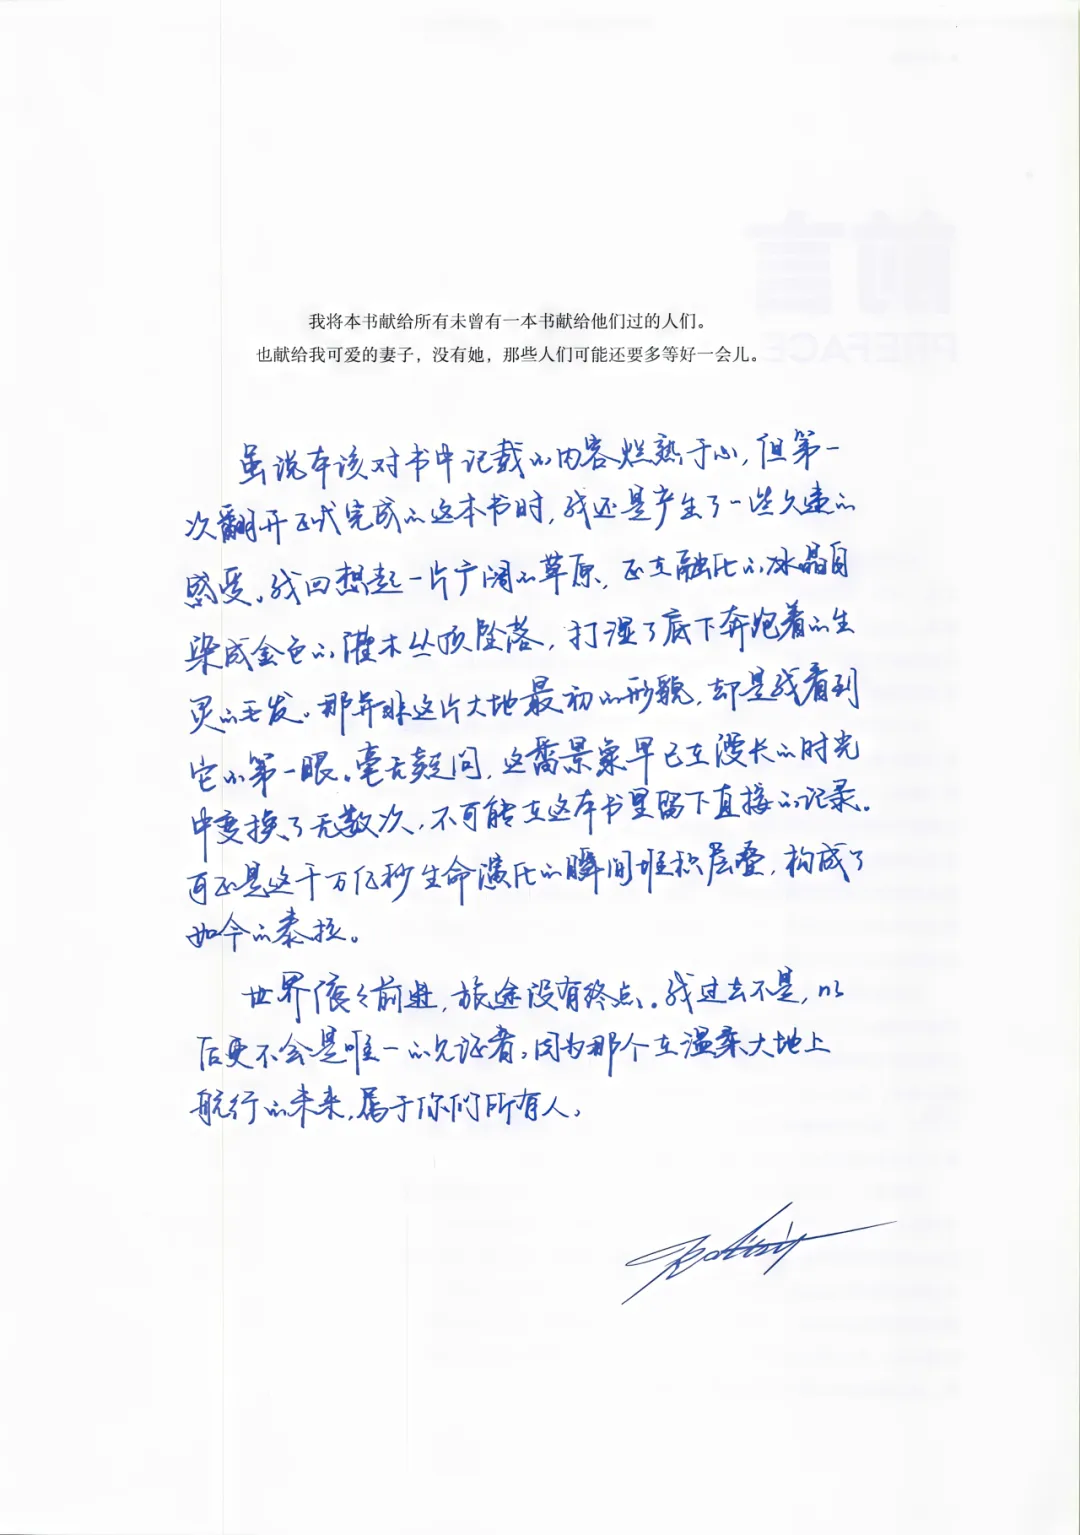 我将本书献给所有未曾有一本书献给他们过的人们。
也献给我可爱的妻子，没有她，那些人们可能还要多等好一会儿。
虽说本该对书中记载的内容烂熟于心，但第一
次翻开正式完成的这本书时，我还是产生了一些久违的
感受。我回想起一片广阔的草原，正在融化的冰晶自
染成金色的灌木丛顶坠落，打湿了底下奔跑着的生
灵的毛发。那并非这片大地最初的形貌，却是我看到
它的第一眼。毫无疑问，这番景象早已在漫长的时光
中变换了无数次，不可能在这本书里留下直接的记录。
可正是这千万亿秒生命演化的瞬间堆积层叠，构成了
如今的泰拉。
世界缓缓前进，旅途没有终点。我过去不是，以
后更不会是唯一的见证者。因为那个在温柔大地上
航行的未来，属于你们所有人。
前言
PREFACE